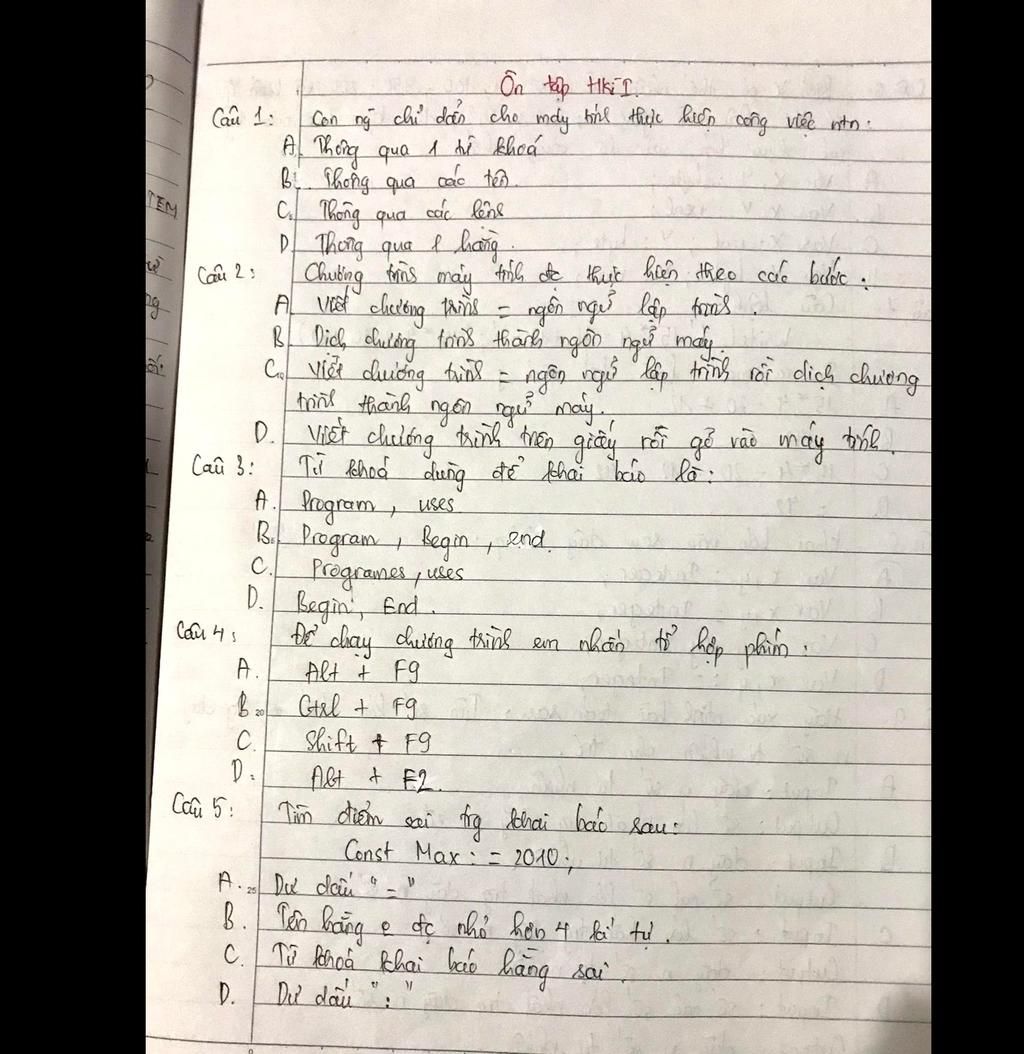 Ôn tập HKI.
Câu 1: Con ng chỉ dẫn cho máy tính thực hiện công việc ntn:
A. Thông qua 1 từ khoá
B. Thông qua các tên.
C. Thông qua các lệnh
D. Thông qua 1 hằng.
Câu 2: Chương trình máy tính đc thực hiện theo các bước:
A. Viết chương trình = ngôn ngữ lập trình.
B. Dịch chương trình thành ngôn ngữ máy.
C. Viết chương trình = ngôn ngữ lập trình rồi dịch chương
trình thành ngôn ngữ máy.
D. Viết chương trình trên giấy rồi gỏ vào máy tính.
Câu 3: Từ khoá dùng để khai báo là:
A. Program, uses
B. Program, Begin, end.
C. Programes, uses
D. Begin, End.
Câu 4: Để chạy chương trình em nhấn tổ hợp phím:
A. Alt + F9
B. Ctrl + F9
C. Shift + F9
D. Alt + F2.
Câu 5: Tìm điểm sai trg khai báo sau:
Const Max : = 2010;
A. Dư dấu "="
B. Tên hằng e đc nhỏ hơn 4 kí tự.
C. Từ khoá khai báo hằng sai.
D. Dư dấu ":"
TEM